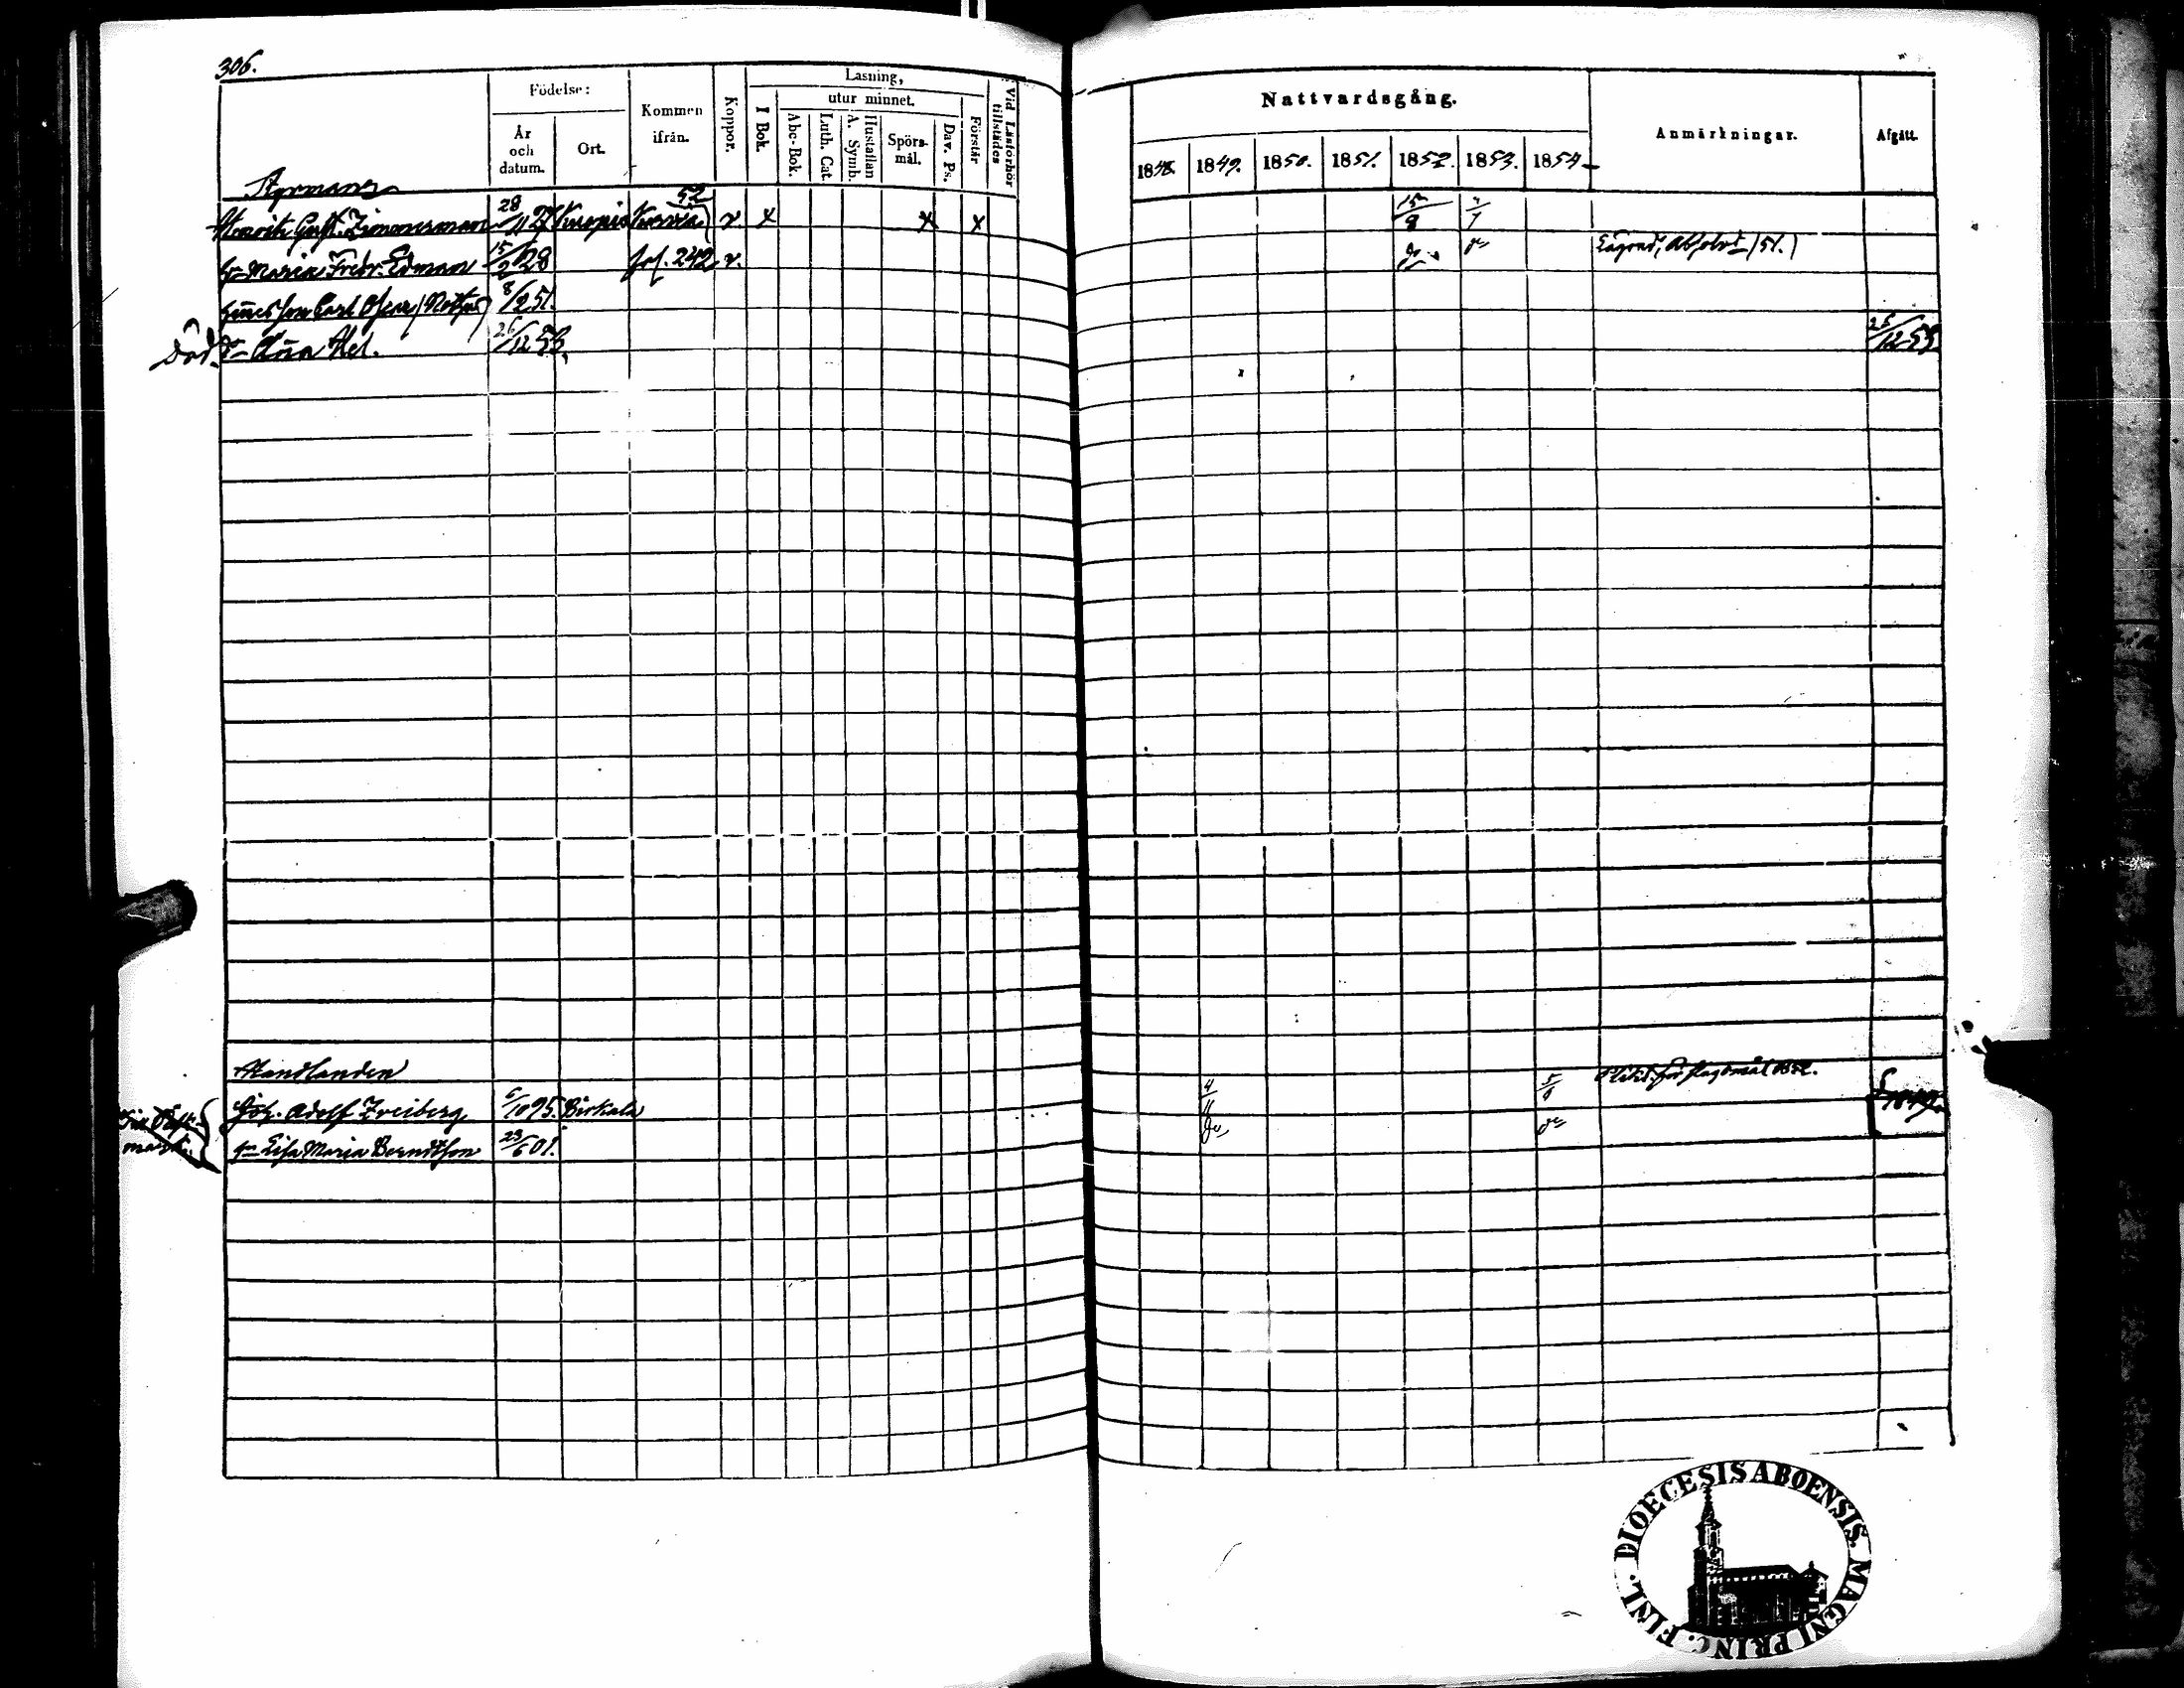 306.
Födelse:
År och datum.
Ort.
Kommen ifrån.
Koppor.
Läsning,
I Bok.
utur minnet.
Abc-Bok.
Luth. Cat.
A. Symb.
Hustaflan
Spörs-mål.
Dav. Ps.
Förstår
Vid Läsförhör tillstädes
Nattvardsgång.
1848. 1849. 1850. 1851. 1852. 1853. 1854
Anmärkningar.
Afgått.
Styrmann
52
Henrik Gust. Zimmerman 28/11 27 Kuopio v. x x x 15/8
hu Maria Fredr. Edman 15/2 28 fol. 242 v. do do Absolv. (51.)
hures son Carl Oscar (Nothus) 8/2 51.
Död. Dr Anna Hel. 26/12 53. 25/12 53
Handlanden
Joh. Adolf Freiberg 6/10 95. Birkala 4/11 5/6 1849.
hu Lisa Maria Berndtson 23/6 01. do do
DIOECESIS ABOENSIS. MAGNI PRINC. FINL.